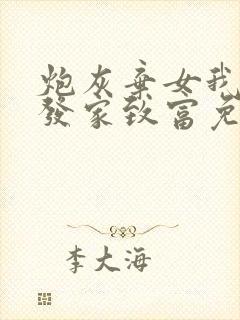 炮灰弃女我
發家致富免
李大海